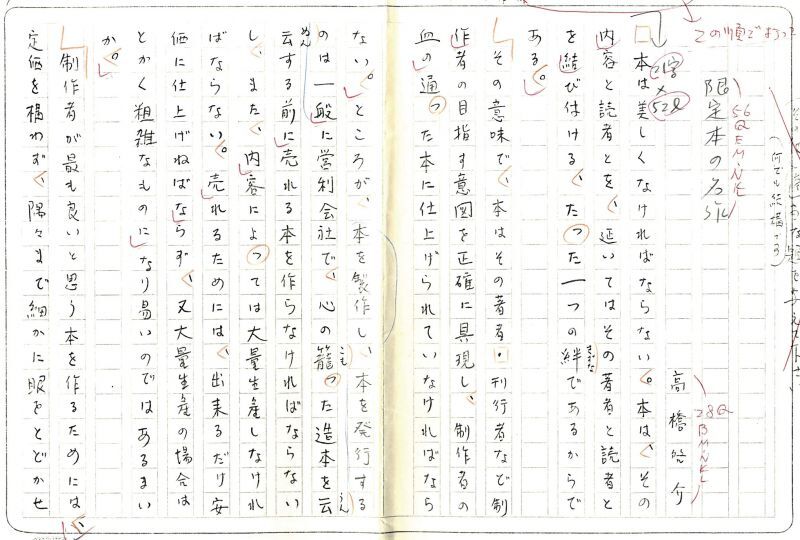 この順でよろ
(何でも結構です)
限定本の名
56Q EM-NKL
高橋啓介
28Q BM-NKL
21字×52ℓ
本は美しくなければならない。本は、その
内容と読者とを、延いてはその著者と読者と
を結び付ける、たった一つの絆であるからで
きずな
ある。
その意味で、本はその著者・刊行者など制
作者の目指す意図を正確に具現し、制作者の
血の通った本に仕上げられていなければなら
ない。ところが、本を製作し、本を発行する
のは一般に営利会社で、心の籠った造本を云
こも
うん
云する前に売れる本を作らなければならない
ぬん
し、また、内容によっては大量生産しなけれ
ばならない。売れるためには、出来るだけ安
価に仕上げねばならず、又大量生産の場合は
とかく粗雑なものになり易いのではあるまい
か。
制作者が最も良いと思う本を作るためには、
定価を構わず、隅々まで細かに眼をとどかせ